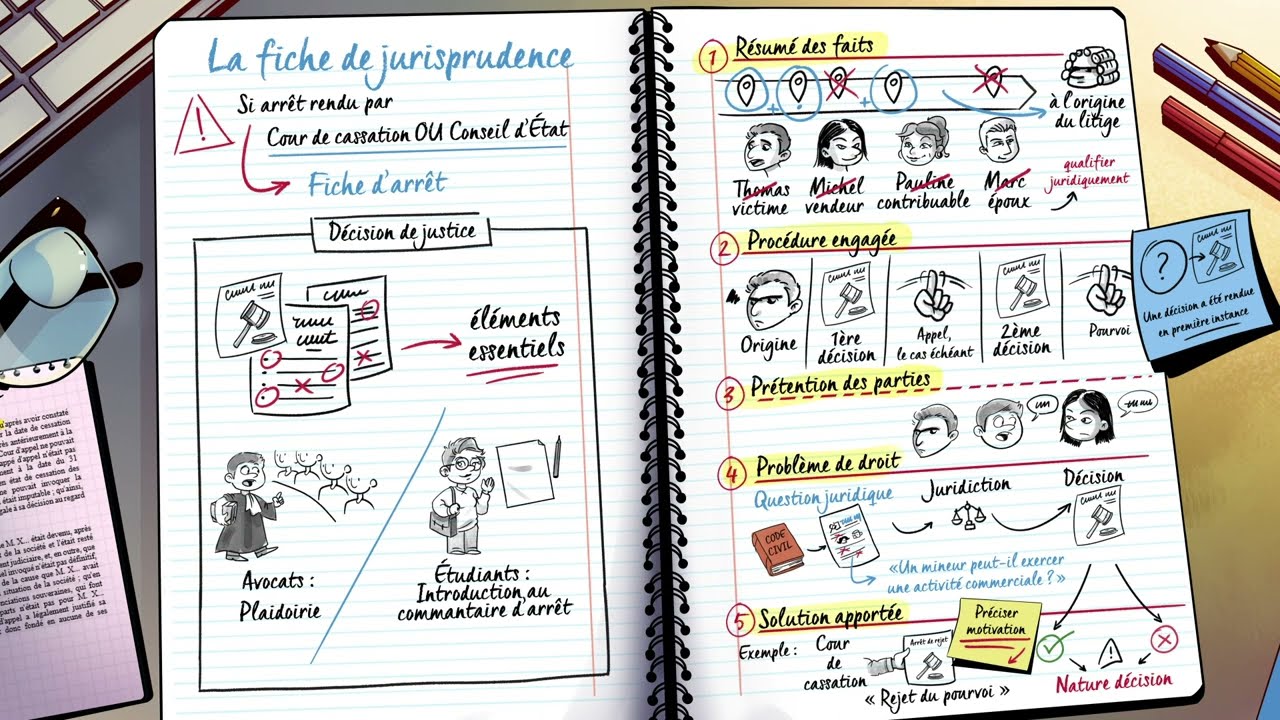 La fiche de jurisprudence
Si arrêt rendu par
Cour de cassation OU Conseil d'État
Fiche d'arrêt
Décision de justice
éléments
essentiels
Avocats :
Plaidoirie
Étudiants :
Introduction au
commantaire d'arrêt
après avoir constaté
la date de cessation
antérieurement à la
Cour d'appel ne pouvait
appel n'était pas
à la date du 31
en état de cessation des
ne pouvait invoquer la
était imputable ; qu'ainsi,
légale à sa décision au regard
M. X... était devenu, après
de la société et l'était resté
judiciaire, et, en outre, que
invoqué n'était pas définitif,
de la cause que M. X... avait
situation de la société ; qu'en
souveraines, qui font
n'était pas pour M. X...
d'appel a légalement justifié sa
donc fondé en aucune de ses
1 Résumé des faits
à l'origine
du litige
Thomas
victime
Michel
vendeur
Pauline
contribuable
Marc
époux
qualifier
juridiquement
2 Procédure engagée
Origine
1ère
décision
Appel,
le cas échéant
2ème
décision
Pourvoi
?
Une décision a été rendue
en première instance
3 Prétention des parties
4 Problème de droit
Question juridique
Juridiction
Décision
CODE
CIVIL
«Un mineur peut-il exercer
une activité commerciale ?»
5 Solution apportée
Exemple :
Cour
de
cassation
Arrêt de rejet
Préciser
motivation
« Rejet du pourvoi »
Nature décision